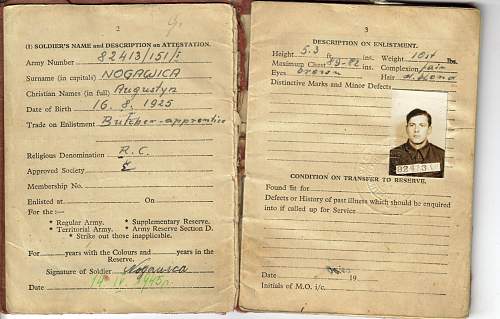 2
(I) SOLDIER'S NAME and DESCRIPTION on ATTESTATION.
Army Number 82413/151/I
Surname (in capitals) NOGAWICA
Christian Names (in full) Augustyn
Date of Birth 16. 8. 1925
Trade on Enlistment Butcher-apprentice
Religious Denomination R.C.
Approved Society
Membership No.
Enlisted at On
For the :—
* Regular Army. * Supplementary Reserve.
* Territorial Army. * Army Reserve Section D.
* Strike out those inapplicable.
For years with the Colours and years in the
Reserve.
Signature of Soldier Nogawica
Date 14 IV 1945r
3
DESCRIPTION ON ENLISTMENT.
Height 5.3 ft. ins. Weight 10st lbs.
Maximum Chest ins. Complexion fair
Eyes brown Hair d. blond
Distinctive Marks and Minor Defects
82413
CONDITION ON TRANSFER TO RESERVE.
Found fit for
Defects or History of past illness which should be enquired
into if called up for Service
Date 19
Initials of M.O. i/c.